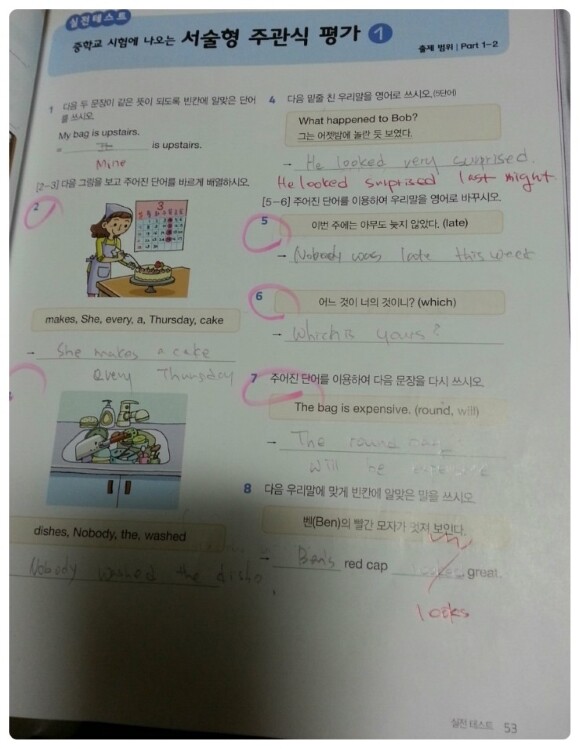 실전테스트
중학교 시험에 나오는 서술형 주관식 평가 1
출제 범위 | Part 1~2
1 다음 두 문장이 같은 뜻이 되도록 빈칸에 알맞은 단어
를 쓰시오.
My bag is upstairs.
= The is upstairs.
Mine
[2~3] 다음 그림을 보고 주어진 단어를 바르게 배열하시오.
2
3
makes, She, every, a, Thursday, cake
→ She makes a cake
every Thursday
dishes, Nobody, the, washed
Nobody washed the dishs
4 다음 밑줄 친 우리말을 영어로 쓰시오.(5단어)
What happened to Bob?
그는 어젯밤에 놀란 듯 보였다.
→ He looked very surprised.
He looked surprised last night.
[5~6] 주어진 단어를 이용하여 우리말을 영어로 바꾸시오.
5 이번 주에는 아무도 늦지 않았다. (late)
→ Nobody was late this week
6 어느 것이 너의 것이니? (which)
→ Which is yours?
7 주어진 단어를 이용하여 다음 문장을 다시 쓰시오.
The bag is expensive. (round, will)
→ The round
will be
8 다음 우리말에 맞게 빈칸에 알맞은 말을 쓰시오.
벤(Ben)의 빨간 모자가 멋져 보인다.
→ Ben's red cap great.
looks
실전 테스트 53